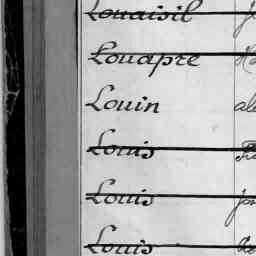 Louaisil
Louapre
Louin
Louis
Louis
Louis